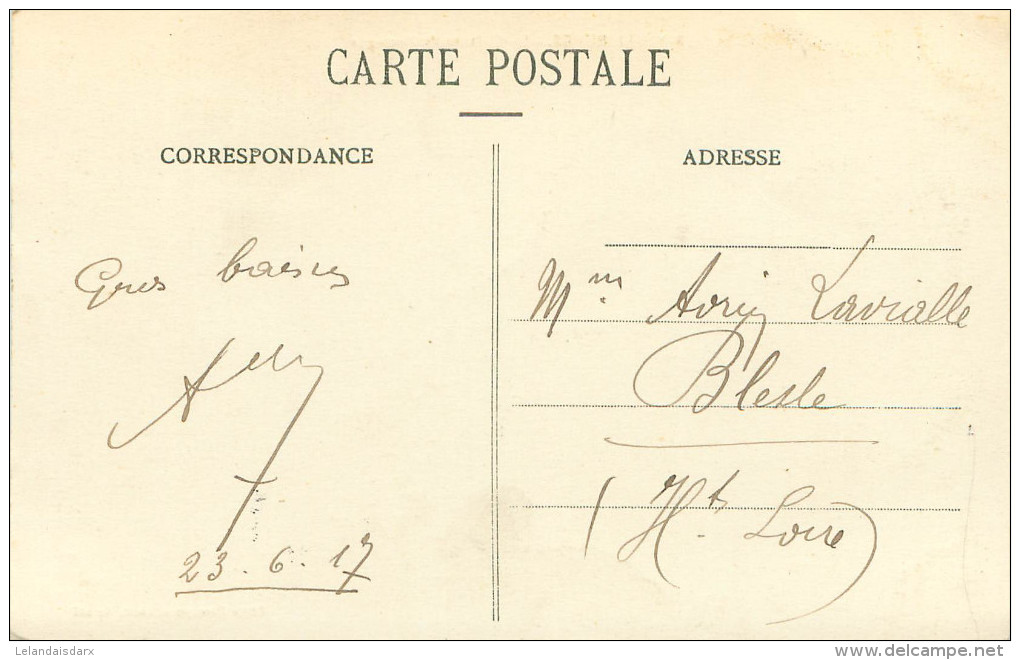 CARTE POSTALE
CORRESPONDANCE
ADRESSE
Gros baisers
23.6.17
Mme Lavialle
Blesle
(Hte Loire)
Lelandaisdarx
www.delcampe.net